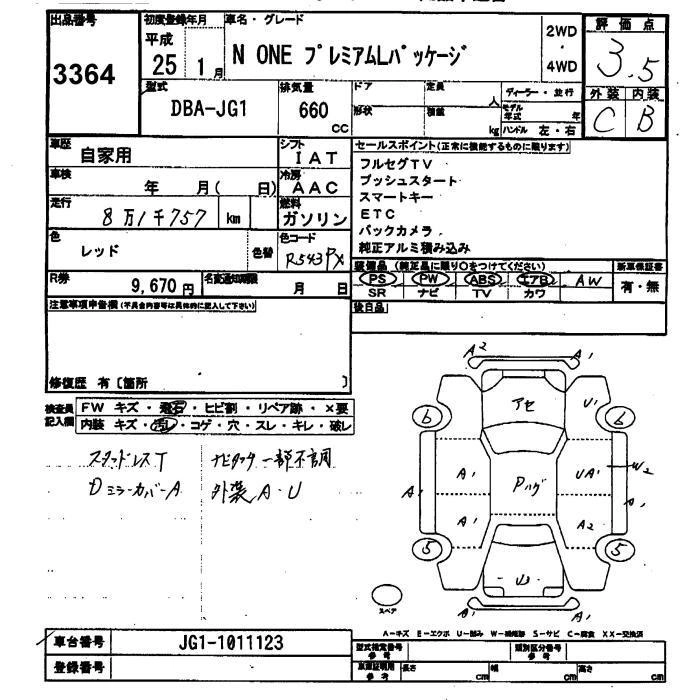 出品番号
3364
初度登録年月
平成
25 1月
車名・グレード
N ONE プレミアムLパッケージ
2WD
・
4WD
評価点
3.5
外装 内装
C B
型式
DBA-JG1
排気量
660
cc
ドア
形状
定員
人
積載
kg
ディーラー・並行
モデル年式 年
ハンドル 左・右
車歴
自家用
シフト
IAT
車検
年 月( 日)
冷房
AAC
走行
8万1千757 km
燃料
ガソリン
色
レッド
色替
色コード
R543PX
R券
9,670円
名変通知期限
月 日
セールスポイント(正常に機能するものに限ります)
フルセグTV
プッシュスタート
スマートキー
ETC
バックカメラ
純正アルミ積み込み
装備品 (純正品に限り○をつけてください)
PS PW ABS エアB AW
SR ナビ TV カワ
新車保証書
有・無
後日品
注意事項申告欄(不具合内容等は具体的に記入して下さい)
修復歴 有〔箇所 〕
検査員記入欄
FW キズ・飛石・ヒビ割・リペア跡・×要
内装 キズ・汚レ・コゲ・穴・スレ・キレ・破レ
スタッドレスT
ナビタッチ一部不良
Dミラーカバー A
外装 A・U
A2
A1
アセ
U1
6
6
A1
Pハゲ
UA1
W2
A1
A1
A1
A2
5
5
U3
A1
A1
スペア
A-キズ E-エクボ U-凹み W-補修跡 S-サビ C-腐食 XX-交換済
車台番号
JG1-1011123
登録番号
型式指定番号
参考
類別区分番号
参考
車庫証明用
参考
長さ
cm
幅
cm
高さ
cm